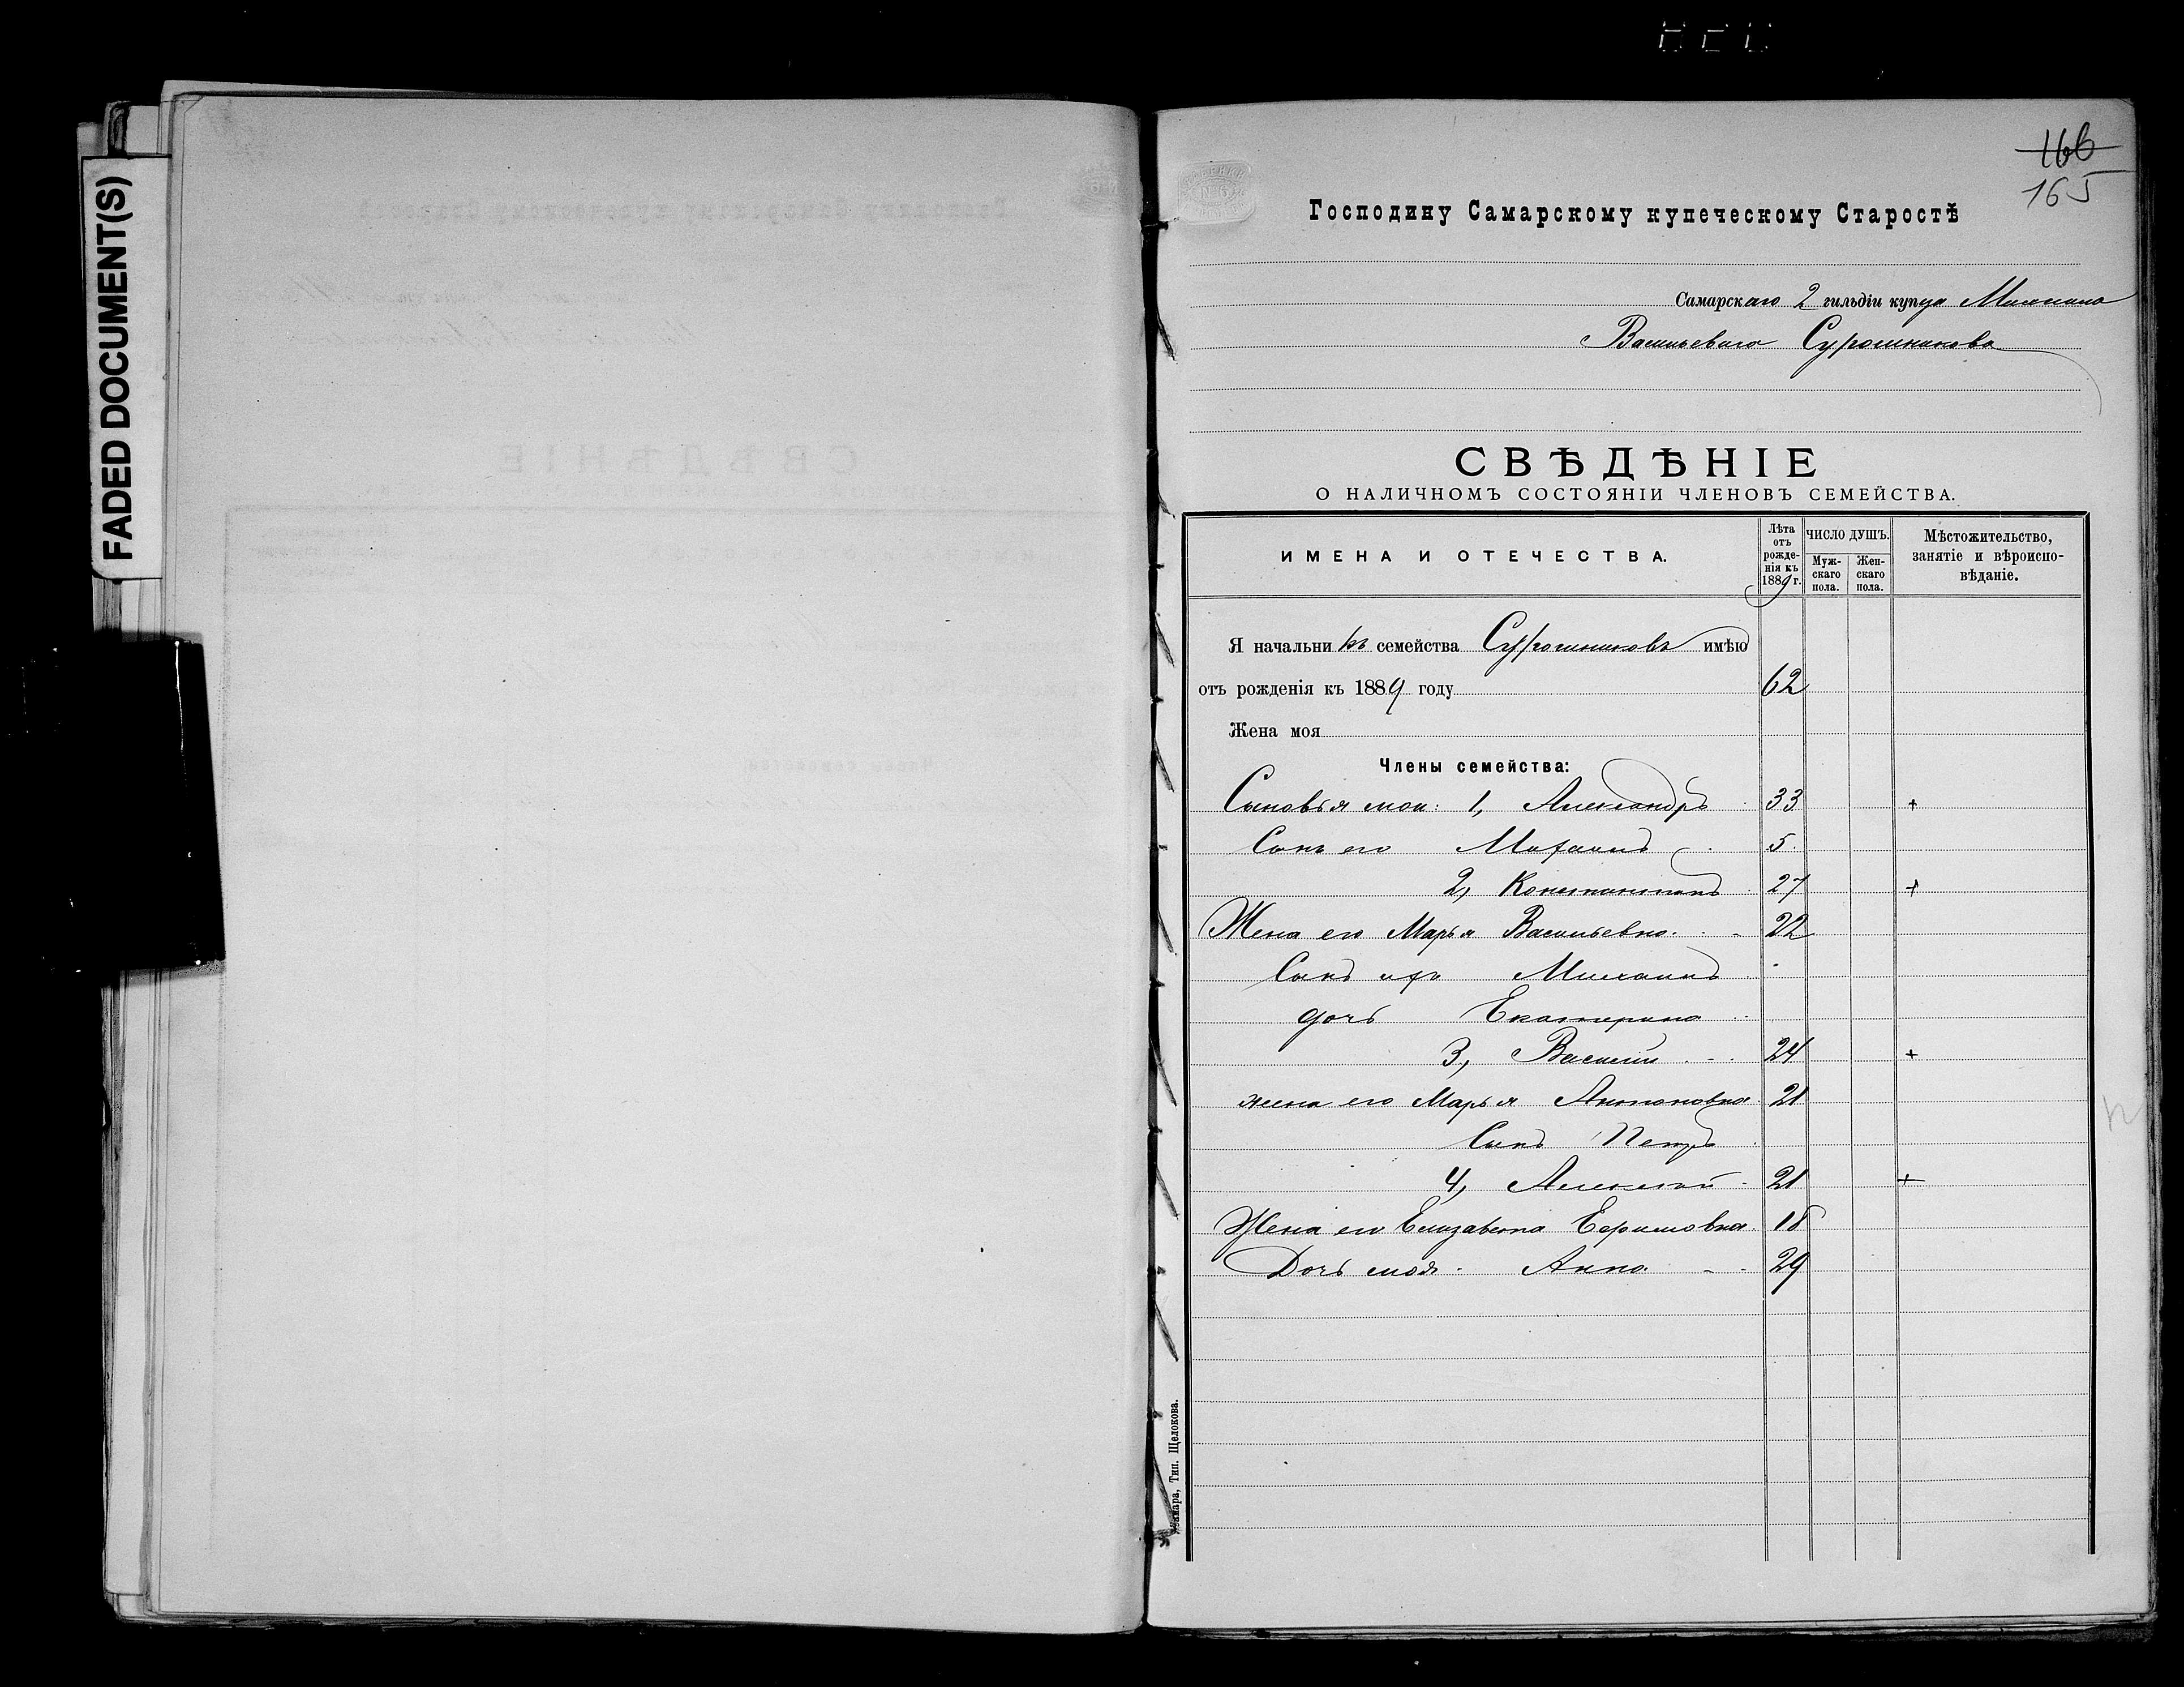 FADED DOCUMENT(S)
166
165
Господину Самарскому купеческому Старостѣ
Самарскаго 2 гильдіи купца Михаила
Васильевича Сурошникова
СВѢДѢНІЕ
О НАЛИЧНОМЪ СОСТОЯНІИ ЧЛЕНОВЪ СЕМЕЙСТВА.
ИМЕНА И ОТЕЧЕСТВА.
Лѣта отъ рожде-нія къ 1889 г.
ЧИСЛО ДУШЪ.
Муж-скаго пола.
Жен-скаго пола.
Мѣстожительство, занятіе и вѣроиспо-вѣданіе.
Я начальникъ семейства Сурошниковъ имѣю
отъ рожденія къ 1889 году 62
Жена моя
Члены семейства:
Сыновья мои: 1, Александръ 33 +
Сынъ его Михаилъ 5
2, Константинъ 27 +
Жена его Марья Васильевна 22
Сынъ ихъ Михаилъ
дочь Екатерина
3, Василій 24 +
жена его Марья Антоновна 21
Сынъ Петръ
4, Алексѣй 21 +
Жена его Елизавета Ефимовна 18
Дочь моя Анна 29
Самара, Тип. Щелокова.